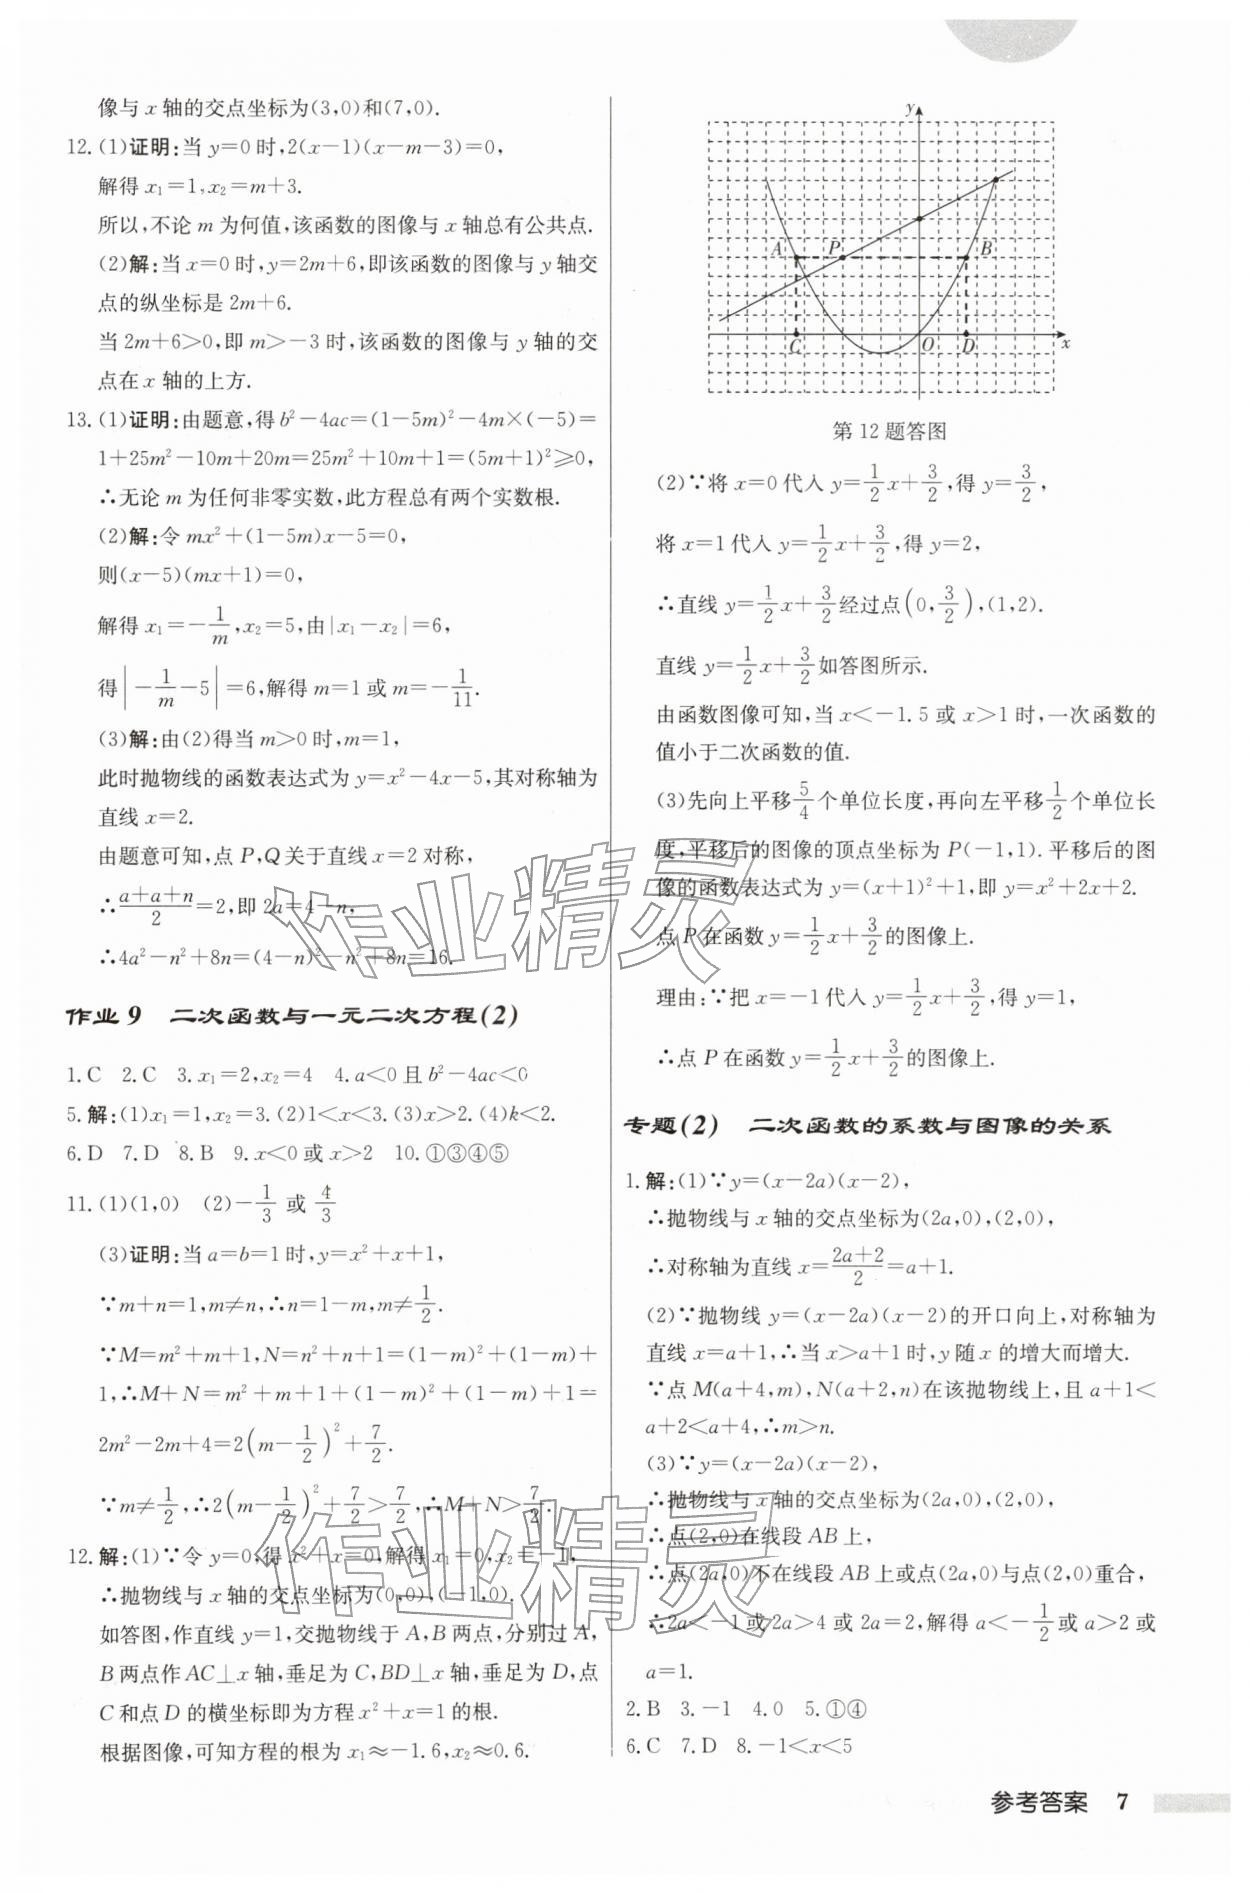 像与 x 轴的交点坐标为(3,0)和(7,0).
12.(1)证明:当 y=0 时,2(x-1)(x-m-3)=0,
解得 x₁=1,x₂=m+3.
所以,不论 m 为何值,该函数的图像与 x 轴总有公共点.
(2)解:当 x=0 时,y=2m+6,即该函数的图像与 y 轴交
点的纵坐标是 2m+6.
当 2m+6>0,即 m>-3 时,该函数的图像与 y 轴的交
点在 x 轴的上方.
13.(1)证明:由题意,得 b²-4ac=(1-5m)²-4m×(-5)=
1+25m²-10m+20m=25m²+10m+1=(5m+1)²≥0,
∴无论 m 为任何非零实数,此方程总有两个实数根.
(2)解:令 mx²+(1-5m)x-5=0,
则(x-5)(mx+1)=0,
解得 x₁=-1/m,x₂=5,由|x₁-x₂|=6,
得|-1/m-5|=6,解得 m=1 或 m=-1/11.
(3)解:由(2)得当 m>0 时,m=1,
此时抛物线的函数表达式为 y=x²-4x-5,其对称轴为
直线 x=2.
由题意可知,点 P,Q 关于直线 x=2 对称,
∴(a+a+n)/2=2,即 2a=4-n,
∴4a²-n²+8n=(4-n)²-n²+8n=16.
作业 9 二次函数与一元二次方程(2)
1.C 2.C 3.x₁=2,x₂=4 4.a<0 且 b²-4ac<0
5.解:(1)x₁=1,x₂=3.(2)1<x<3.(3)x>2.(4)k<2.
6.D 7.D 8.B 9.x<0 或 x>2 10.①③④⑤
11.(1)(1,0) (2)-1/3 或 4/3
(3)证明:当 a=b=1 时,y=x²+x+1,
∵m+n=1,m≠n,∴n=1-m,m≠1/2.
∵M=m²+m+1,N=n²+n+1=(1-m)²+(1-m)+
1,∴M+N=m²+m+1+(1-m)²+(1-m)+1=
2m²-2m+4=2(m-1/2)²+7/2.
∵m≠1/2,∴2(m-1/2)²+7/2>7/2,∴M+N>7/2.
12.解:(1)∵令 y=0,得 x²+x=0,解得 x₁=0,x₂=-1,
∴抛物线与 x 轴的交点坐标为(0,0),(-1,0).
如答图,作直线 y=1,交抛物线于 A,B 两点,分别过 A,
B 两点作 AC⊥x 轴,垂足为 C,BD⊥x 轴,垂足为 D,点
C 和点 D 的横坐标即为方程 x²+x=1 的根.
根据图像,可知方程的根为 x₁≈-1.6,x₂≈0.6.
y
A P B
C O D x
第 12 题答图
(2)∵将 x=0 代入 y=1/2x+3/2,得 y=3/2,
将 x=1 代入 y=1/2x+3/2,得 y=2,
∴直线 y=1/2x+3/2经过点(0,3/2),(1,2).
直线 y=1/2x+3/2如答图所示.
由函数图像可知,当 x<-1.5 或 x>1 时,一次函数的
值小于二次函数的值.
(3)先向上平移5/4个单位长度,再向左平移1/2个单位长
度,平移后的图像的顶点坐标为 P(-1,1).平移后的图
像的函数表达式为 y=(x+1)²+1,即 y=x²+2x+2.
点 P 在函数 y=1/2x+3/2的图像上.
理由:∵把 x=-1 代入 y=1/2x+3/2,得 y=1,
∴点 P 在函数 y=1/2x+3/2的图像上.
专题(2) 二次函数的系数与图像的关系
1.解:(1)∵y=(x-2a)(x-2),
∴抛物线与 x 轴的交点坐标为(2a,0),(2,0),
∴对称轴为直线 x=(2a+2)/2=a+1.
(2)∵抛物线 y=(x-2a)(x-2)的开口向上,对称轴为
直线 x=a+1,∴当 x>a+1 时,y 随 x 的增大而增大.
∵点 M(a+4,m),N(a+2,n)在该抛物线上,且 a+1<
a+2<a+4,∴m>n.
(3)∵y=(x-2a)(x-2),
∴抛物线与 x 轴的交点坐标为(2a,0),(2,0),
∴点(2,0)在线段 AB 上,
∴点(2a,0)不在线段 AB 上或点(2a,0)与点(2,0)重合,
∴2a<-1 或 2a>4 或 2a=2,解得 a<-1/2或 a>2 或
a=1.
2.B 3.-1 4.0 5.①④
6.C 7.D 8.-1<x<5
参考答案 7
作业精灵
作业精灵